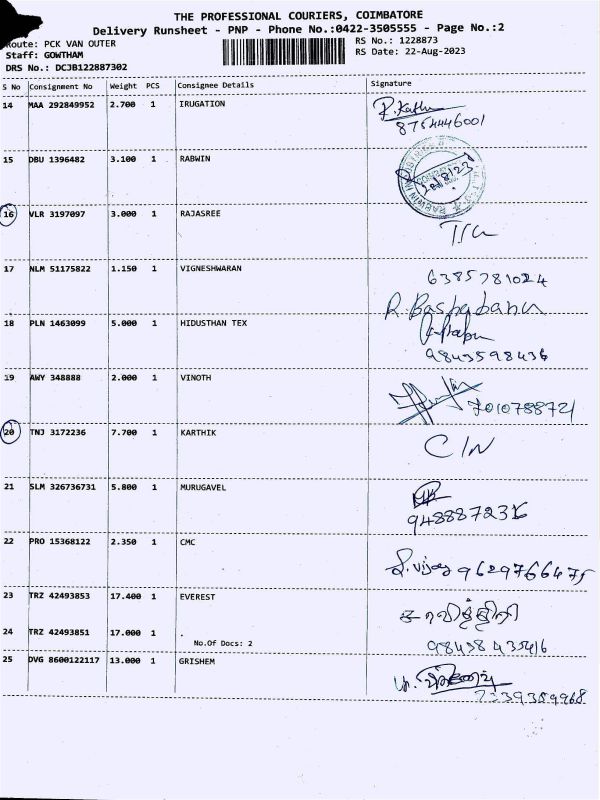 THE PROFESSIONAL COURIERS, COIMBATORE
Delivery Runsheet - PNP - Phone No.:0422-3505555 - Page No.:2
Route: PCK VAN OUTER
RS No.: 1228873
Staff: GOWTHAM
RS Date: 22-Aug-2023
DRS No.: DCJB122887302
S No Consignment No Weight PCS Consignee Details Signature
14 MAA 292849952 2.700 1 IRUGATION
8754446001
15 DBU 1396482 3.100 1 RABWIN
16 VLR 3197097 3.000 1 RAJASREE
17 NLM 51175822 1.150 1 VIGNESHWARAN 6385781024
18 PLN 1463099 5.000 1 HIDUSTHAN TEX
9843598436
19 AWY 348888 2.000 1 VINOTH
7010788721
20 TNJ 3172236 7.700 1 KARTHIK
C/N
21 SLM 326736731 5.800 1 MURUGAVEL
9488872316
22 PRO 15368122 2.350 1 CMC
S.vijay 9629766475
23 TRZ 42493853 17.400 1 EVEREST
சாவித்திரி
24 TRZ 42493851 17.000 1 .
No.Of Docs: 2
98458435416
25 DVG 8600122117 13.000 1 GRISHEM
7339359968